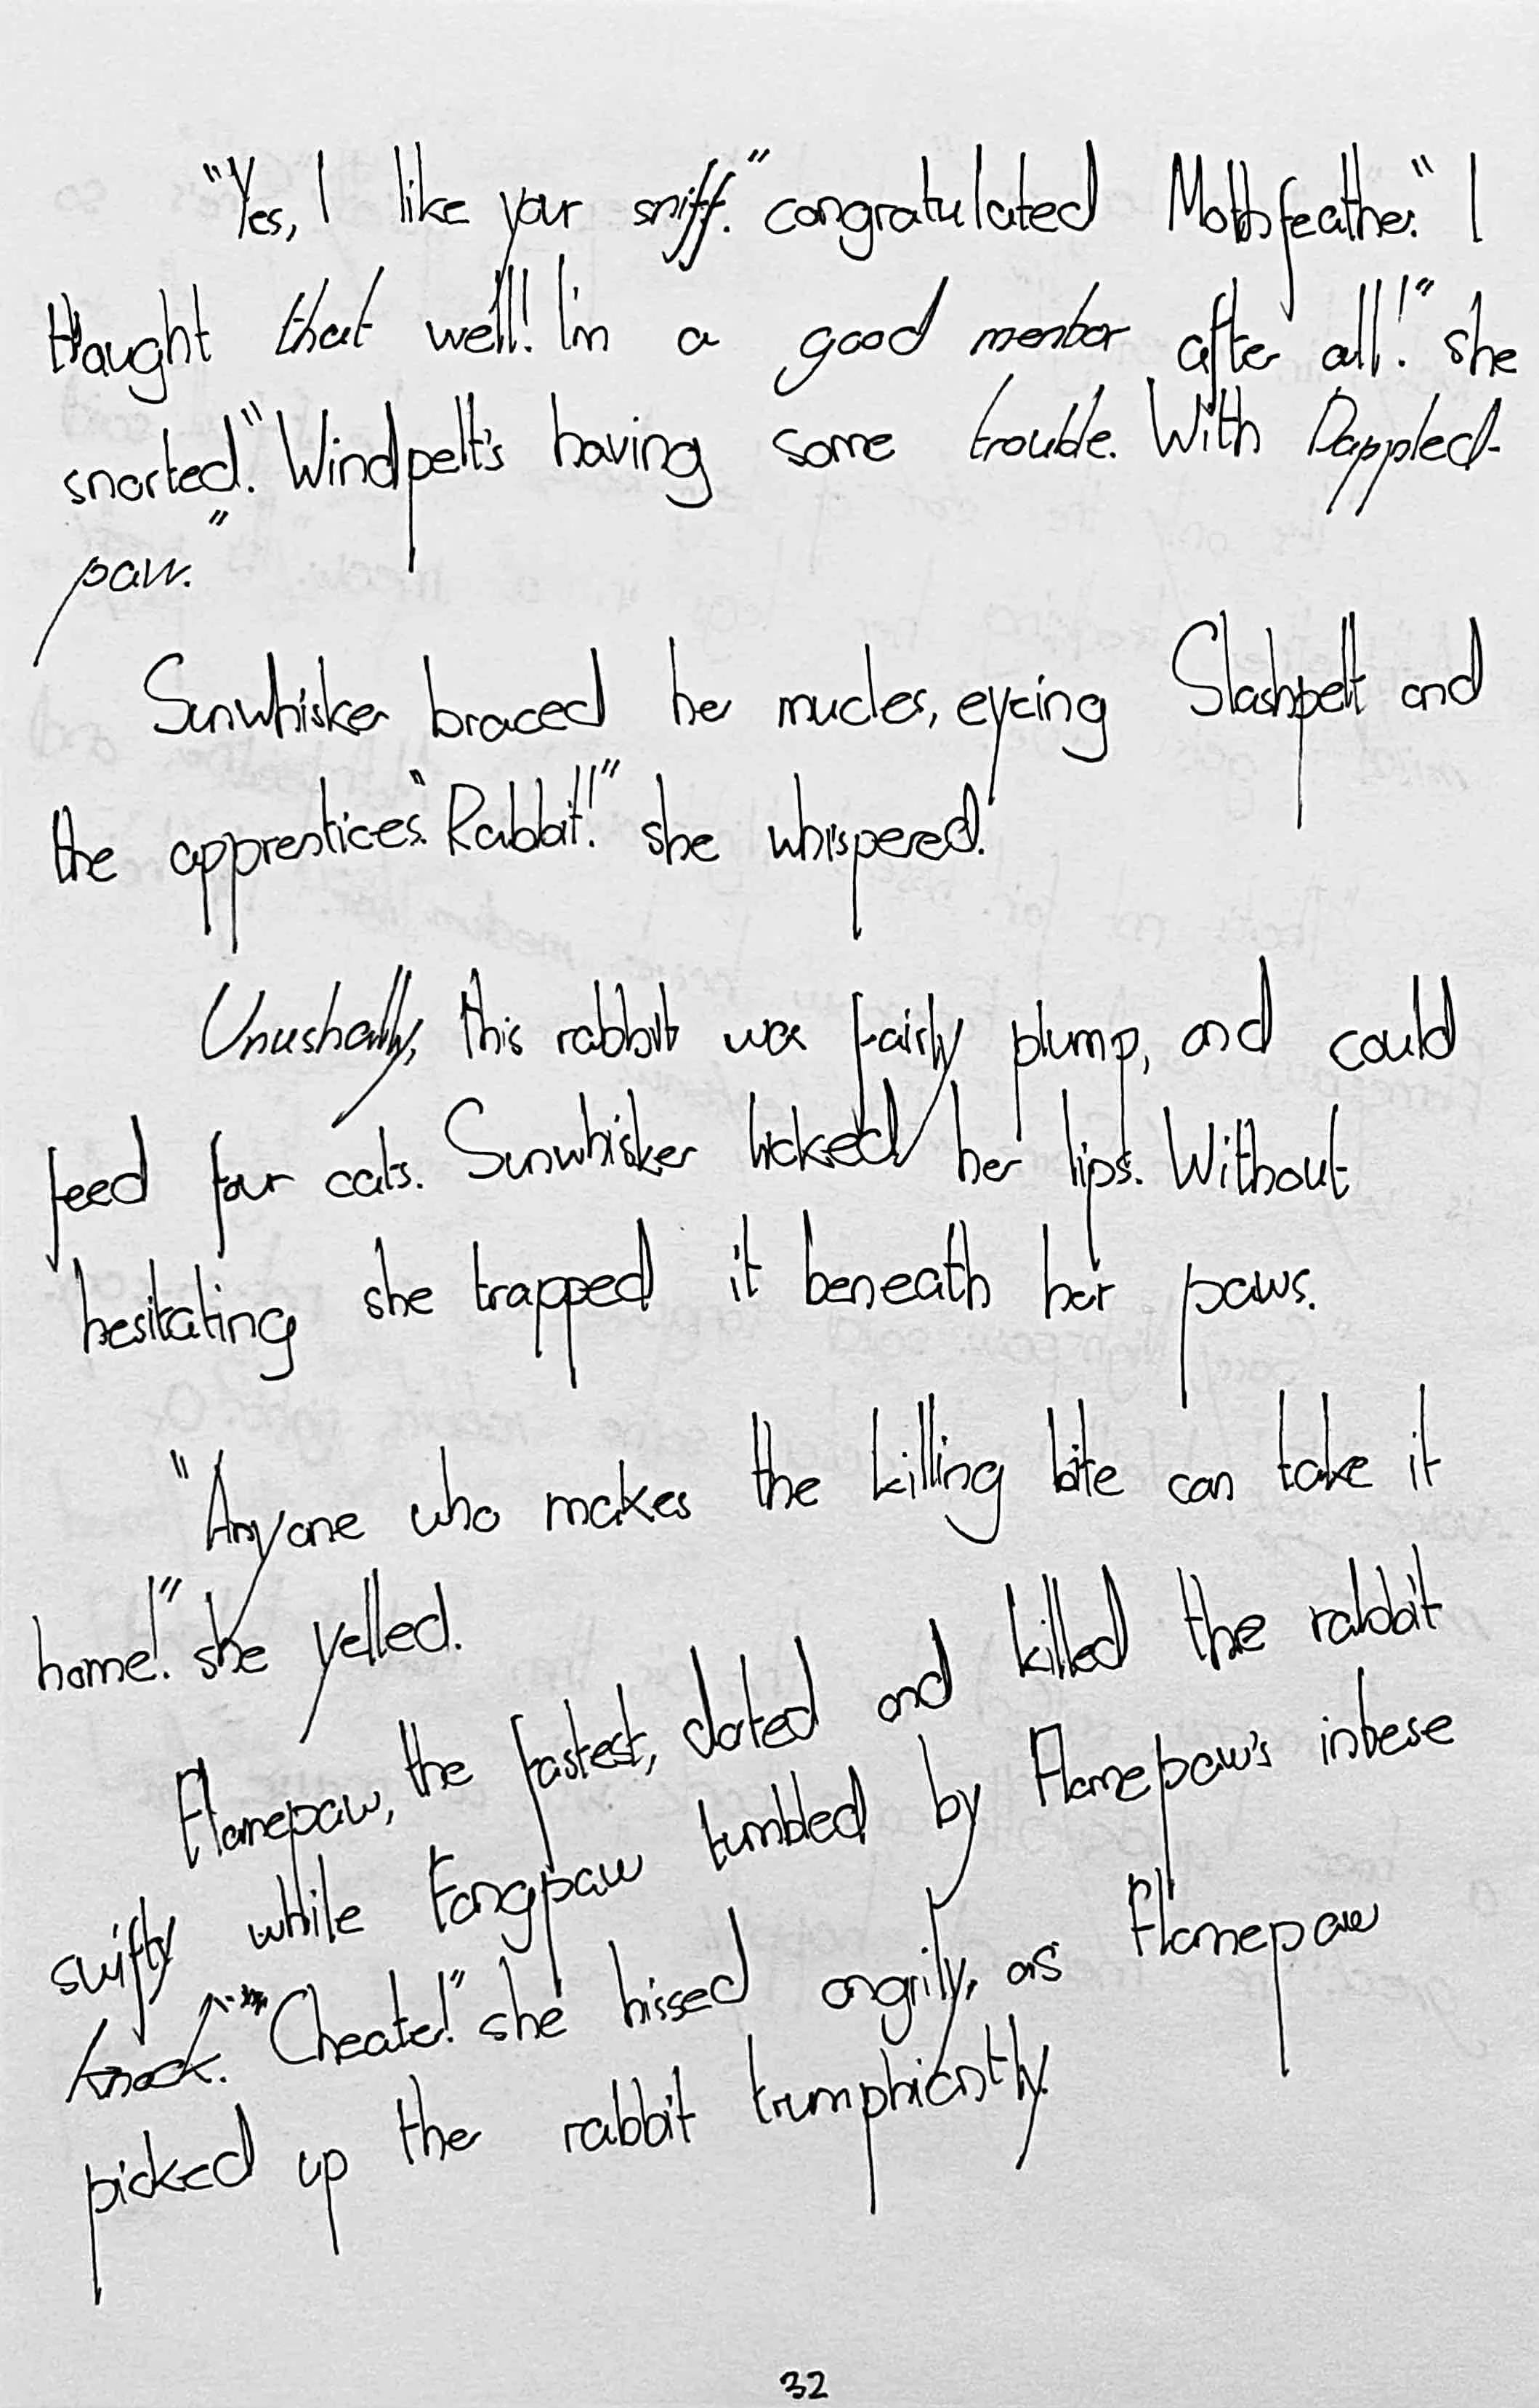 "Yes, I like your sniff." congratulated Mothfeather. "I
thaught that well! I'm a good mentor after all!" she
snorted. "Windpelt's having some trouble. With Dappled-
paw."
Sunwhisker braced her mucles, eyeing Slashpelt and
the apprentices. "Rabbit!" she whispered.
Unushally, this rabbit was fairly plump, and could
feed four cats. Sunwhisker licked her lips. Without
hesitating she trapped it beneath her paws.
"Anyone who makes the killing bite can take it
home!" she yelled.
Flamepaw, the fastest, darted and killed the rabbit
swiftly while Fangpaw tumbled by Flamepaw's intese
knock. "Cheater!" she hissed angrily, as Flamepaw
picked up the rabbit trumphiantly.
32